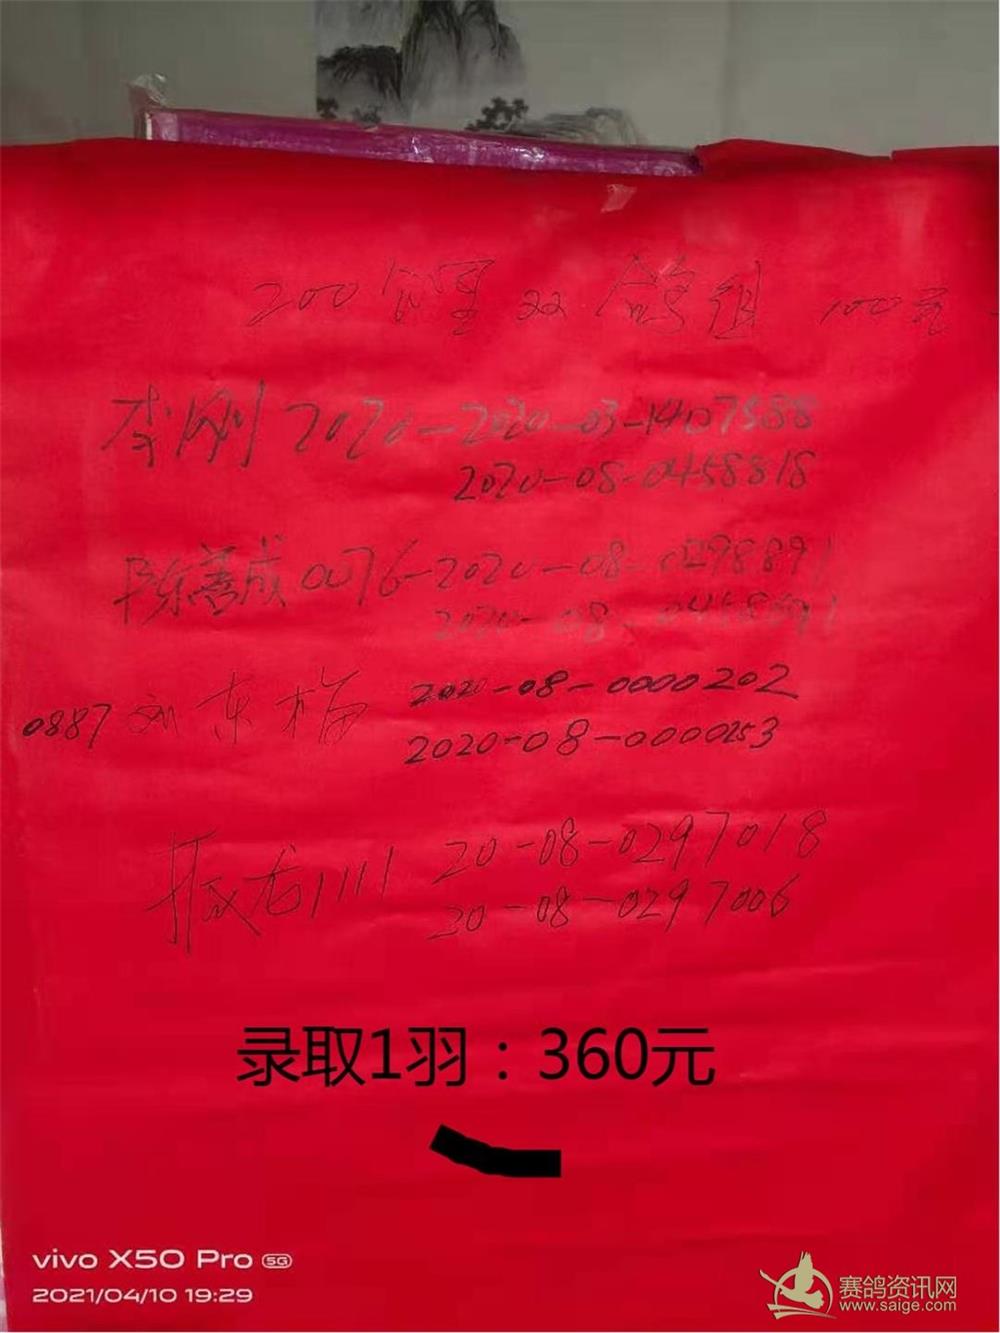 200公里双鸽组 100元
李刚 2020-2020-03-1407588
2020-08-0458818
陈善成 0076-2020-08-0298891
2020-08-
0887 刘东梅 2020-08-0000202
2020-08-0000253
振龙1111 20-08-0297018
20-08-0297006
录取1羽：360元
vivo X50 Pro 5G
2021/04/10 19:29
赛鸽资讯网
www.saige.com